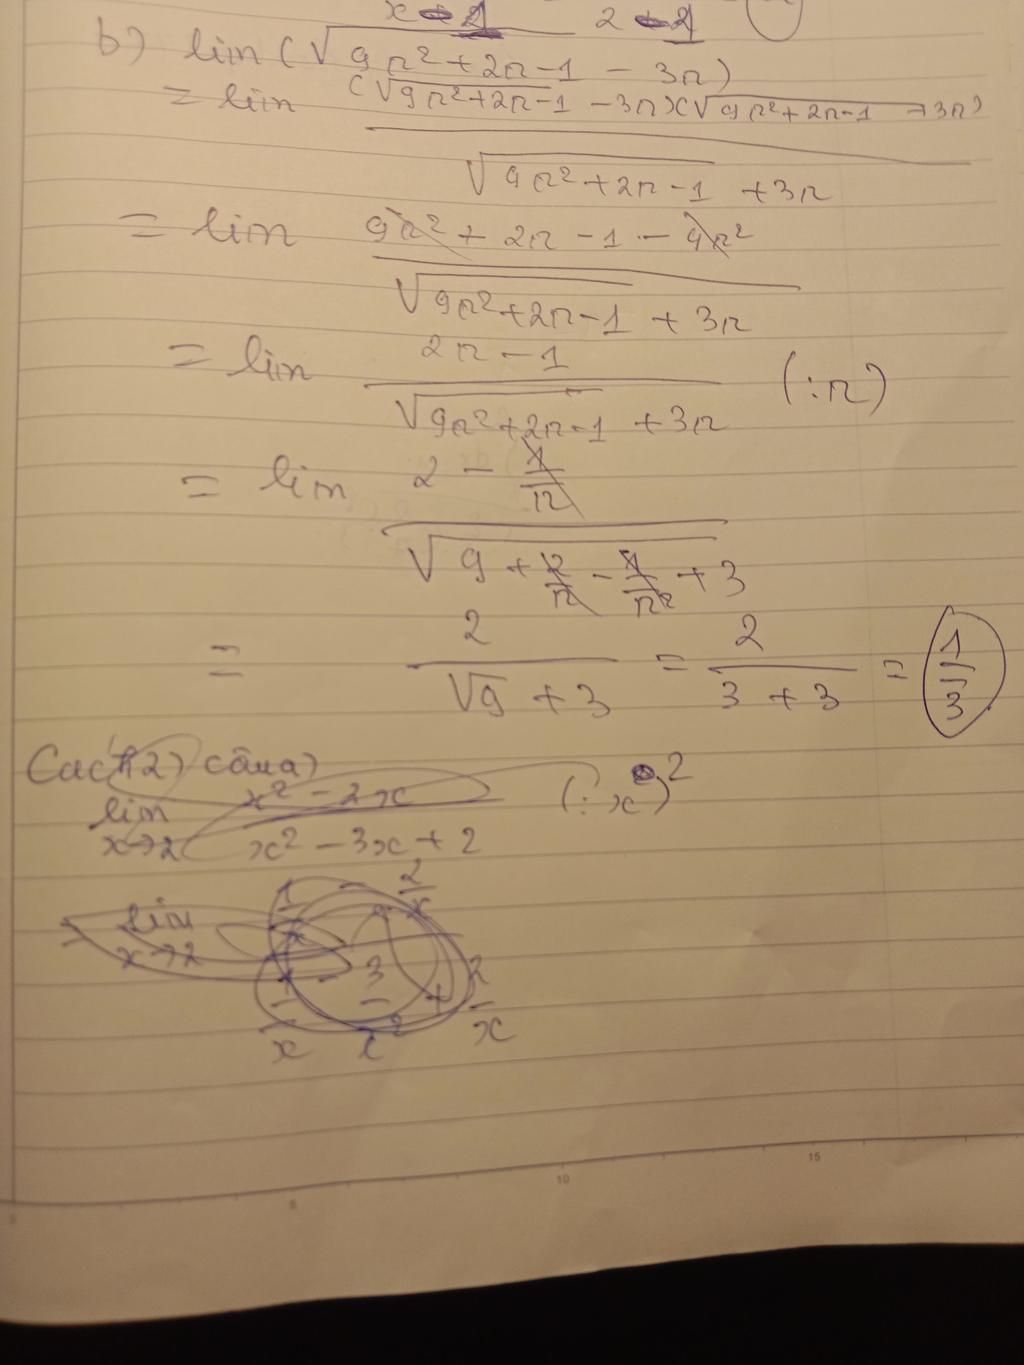 x - 1 2 - 1
b) lim (√9n²+2n-1 - 3n)
= lim (√9n²+2n-1 - 3n)(√9n²+2n-1 + 3n)
√9n²+2n-1 + 3n
= lim 9n² + 2n - 1 - 9n²
√9n²+2n-1 + 3n
= lim 2n - 1 (:n)
√9n²+2n-1 + 3n
= lim 2 - 1/n
√9 + 2/n - 1/n² + 3
= 2/(√9 + 3) = 2/(3 + 3) = 1/3
Cách 2) câu a)
lim x→2 x² - 2x (: x)²
x² - 3x + 2
= lim x→2 1 - 2/x
1/x - 3/x² + 2/x
5 10 15